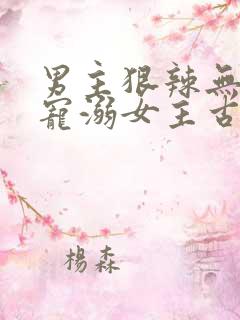 男主狠辣無
寵溺女主古
楊森